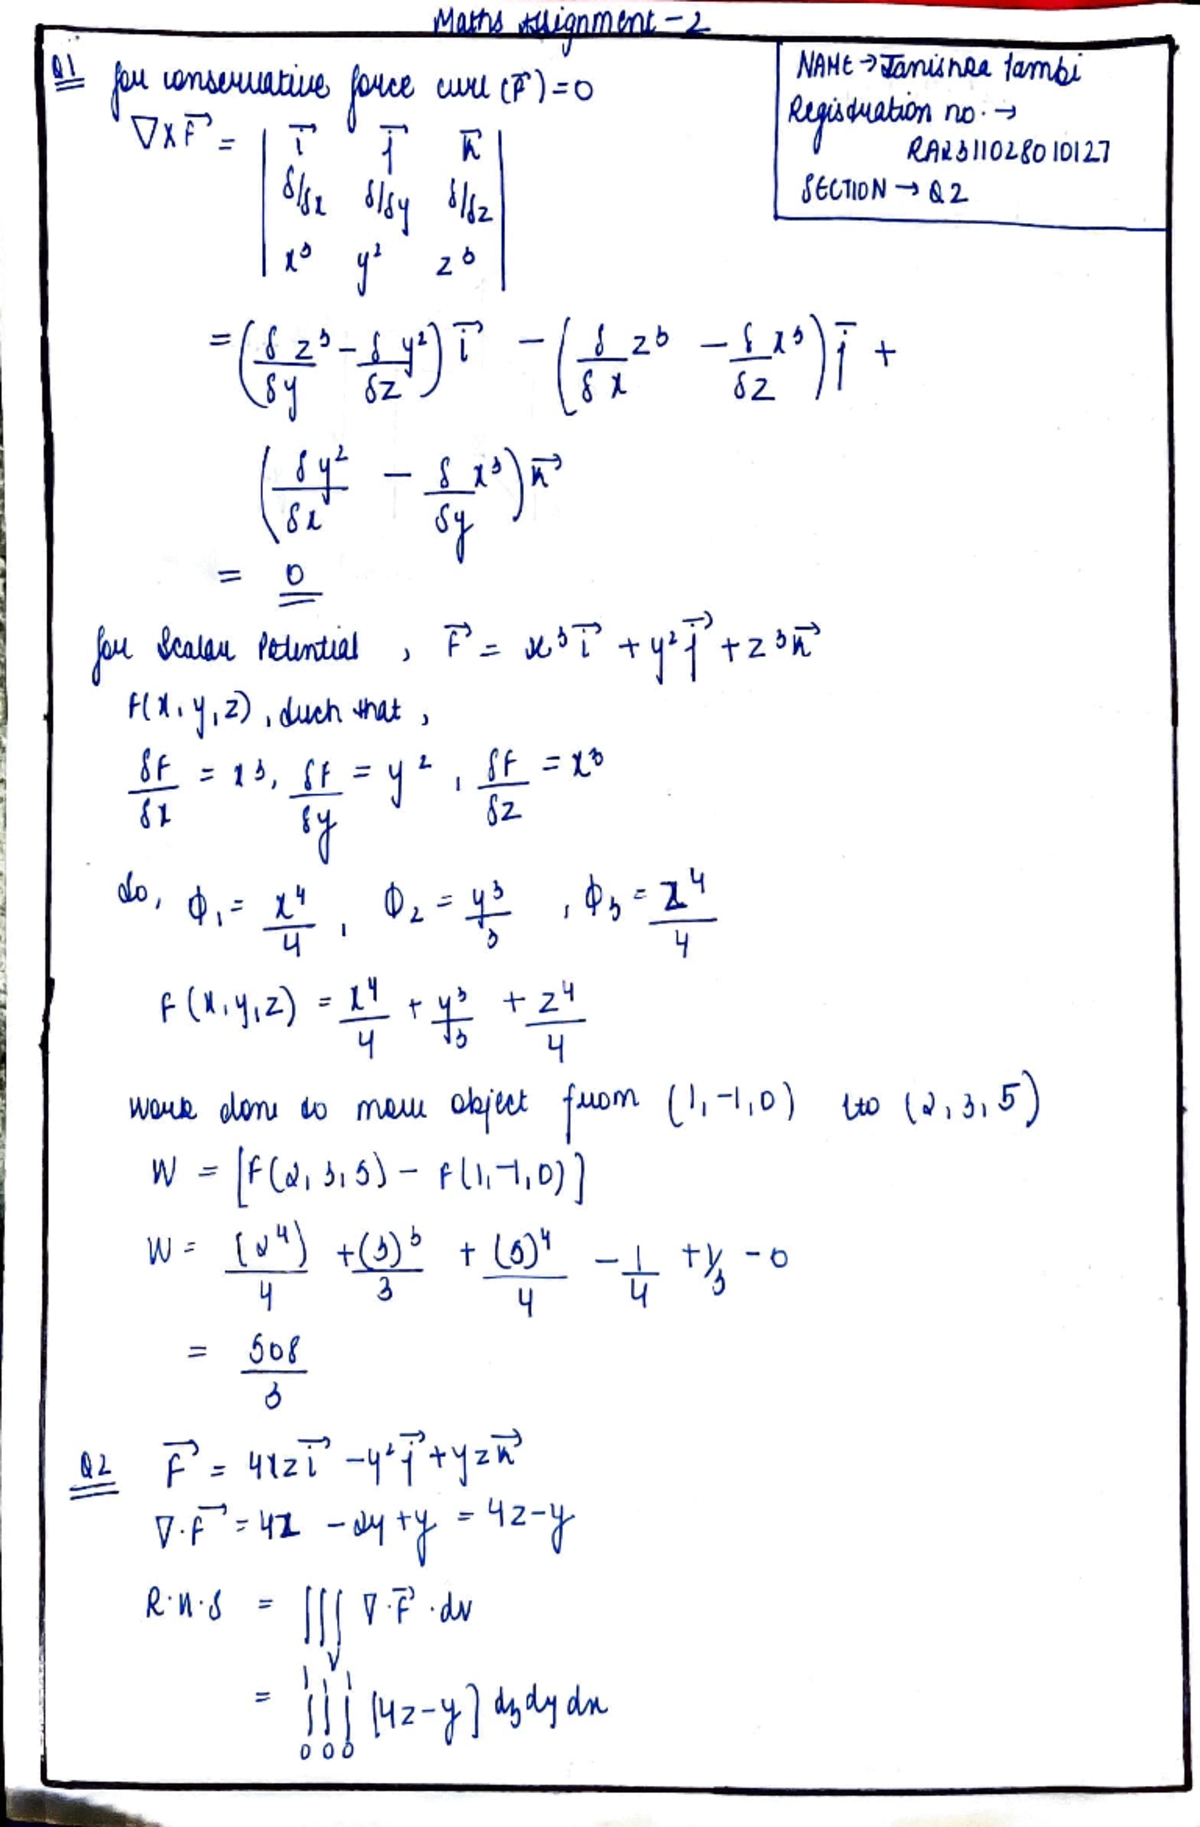 Maths Assignment - 2
NAME → Tanishka Tambi
Registration no. →
RA2311028010127
SECTION → Q2
Q1 for conservative force curl (F⃗) = 0
∇ X F⃗ = | i⃗ j⃗ k⃗ |
| δ/δx δ/δy δ/δz |
| x³ y² z³ |
= (δ/δy z³ - δ/δz y²) i⃗ - (δ/δx z³ - δ/δz x³) j⃗ +
(δy²/δx - δ/δy x³) k⃗
= 0
for Scalar Potential , F⃗ = x³ i⃗ + y² j⃗ + z³ k⃗
f(x, y, z) , such that ,
δf/δx = x³, δf/δy = y² , δf/δz = x³
So, Φ₁ = x⁴/4 , Φ₂ = y³/3 , Φ₃ = z⁴/4
f (x, y, z) = x⁴/4 + y³/3 + z⁴/4
Work done to move object from (1, -1, 0) to (2, 3, 5)
W = [f(2, 3, 5) - f(1, -1, 0)]
W = (2⁴)/4 + (3)³/3 + (5)⁴/4 - 1/4 + 1/3 - 0
= 508/3
Q2 F⃗ = 4xz i⃗ - y² j⃗ + yz k⃗
∇ · F⃗ = 4z - 2y + y = 4z - y
R.H.S = ∭ᵥ ∇ · F⃗ · dv
= ∫₀¹ ∫₀¹ ∫₀¹ [4z - y] dz dy dx